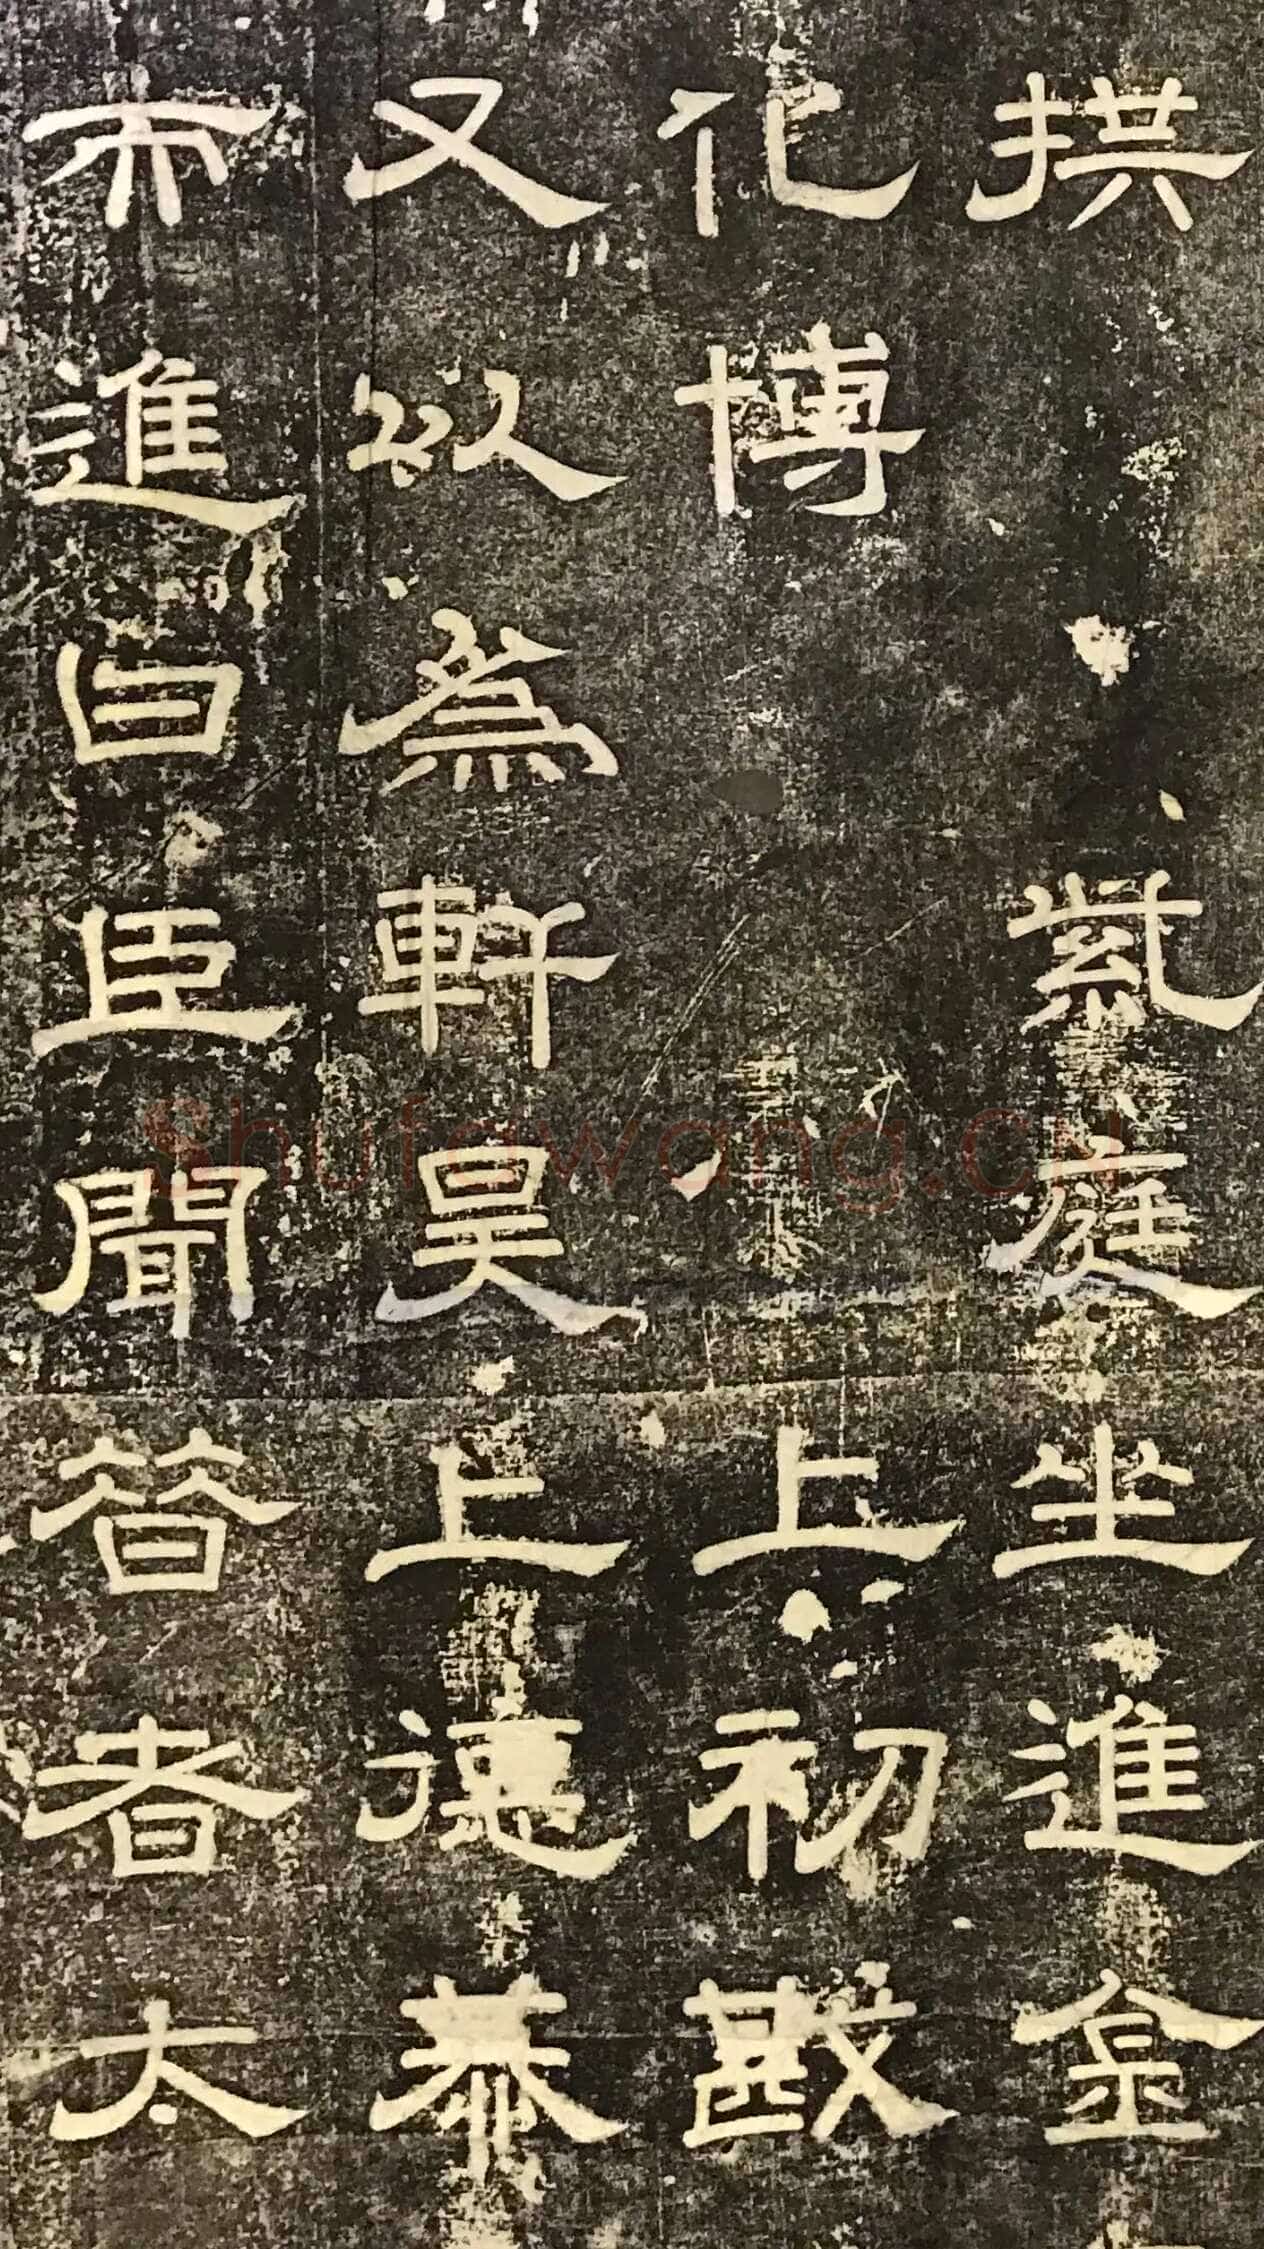 拱紫庭坐進金
化博上初戡
又以為軒昊上德恭
而進曰臣聞昔者太
Shufawang.CN